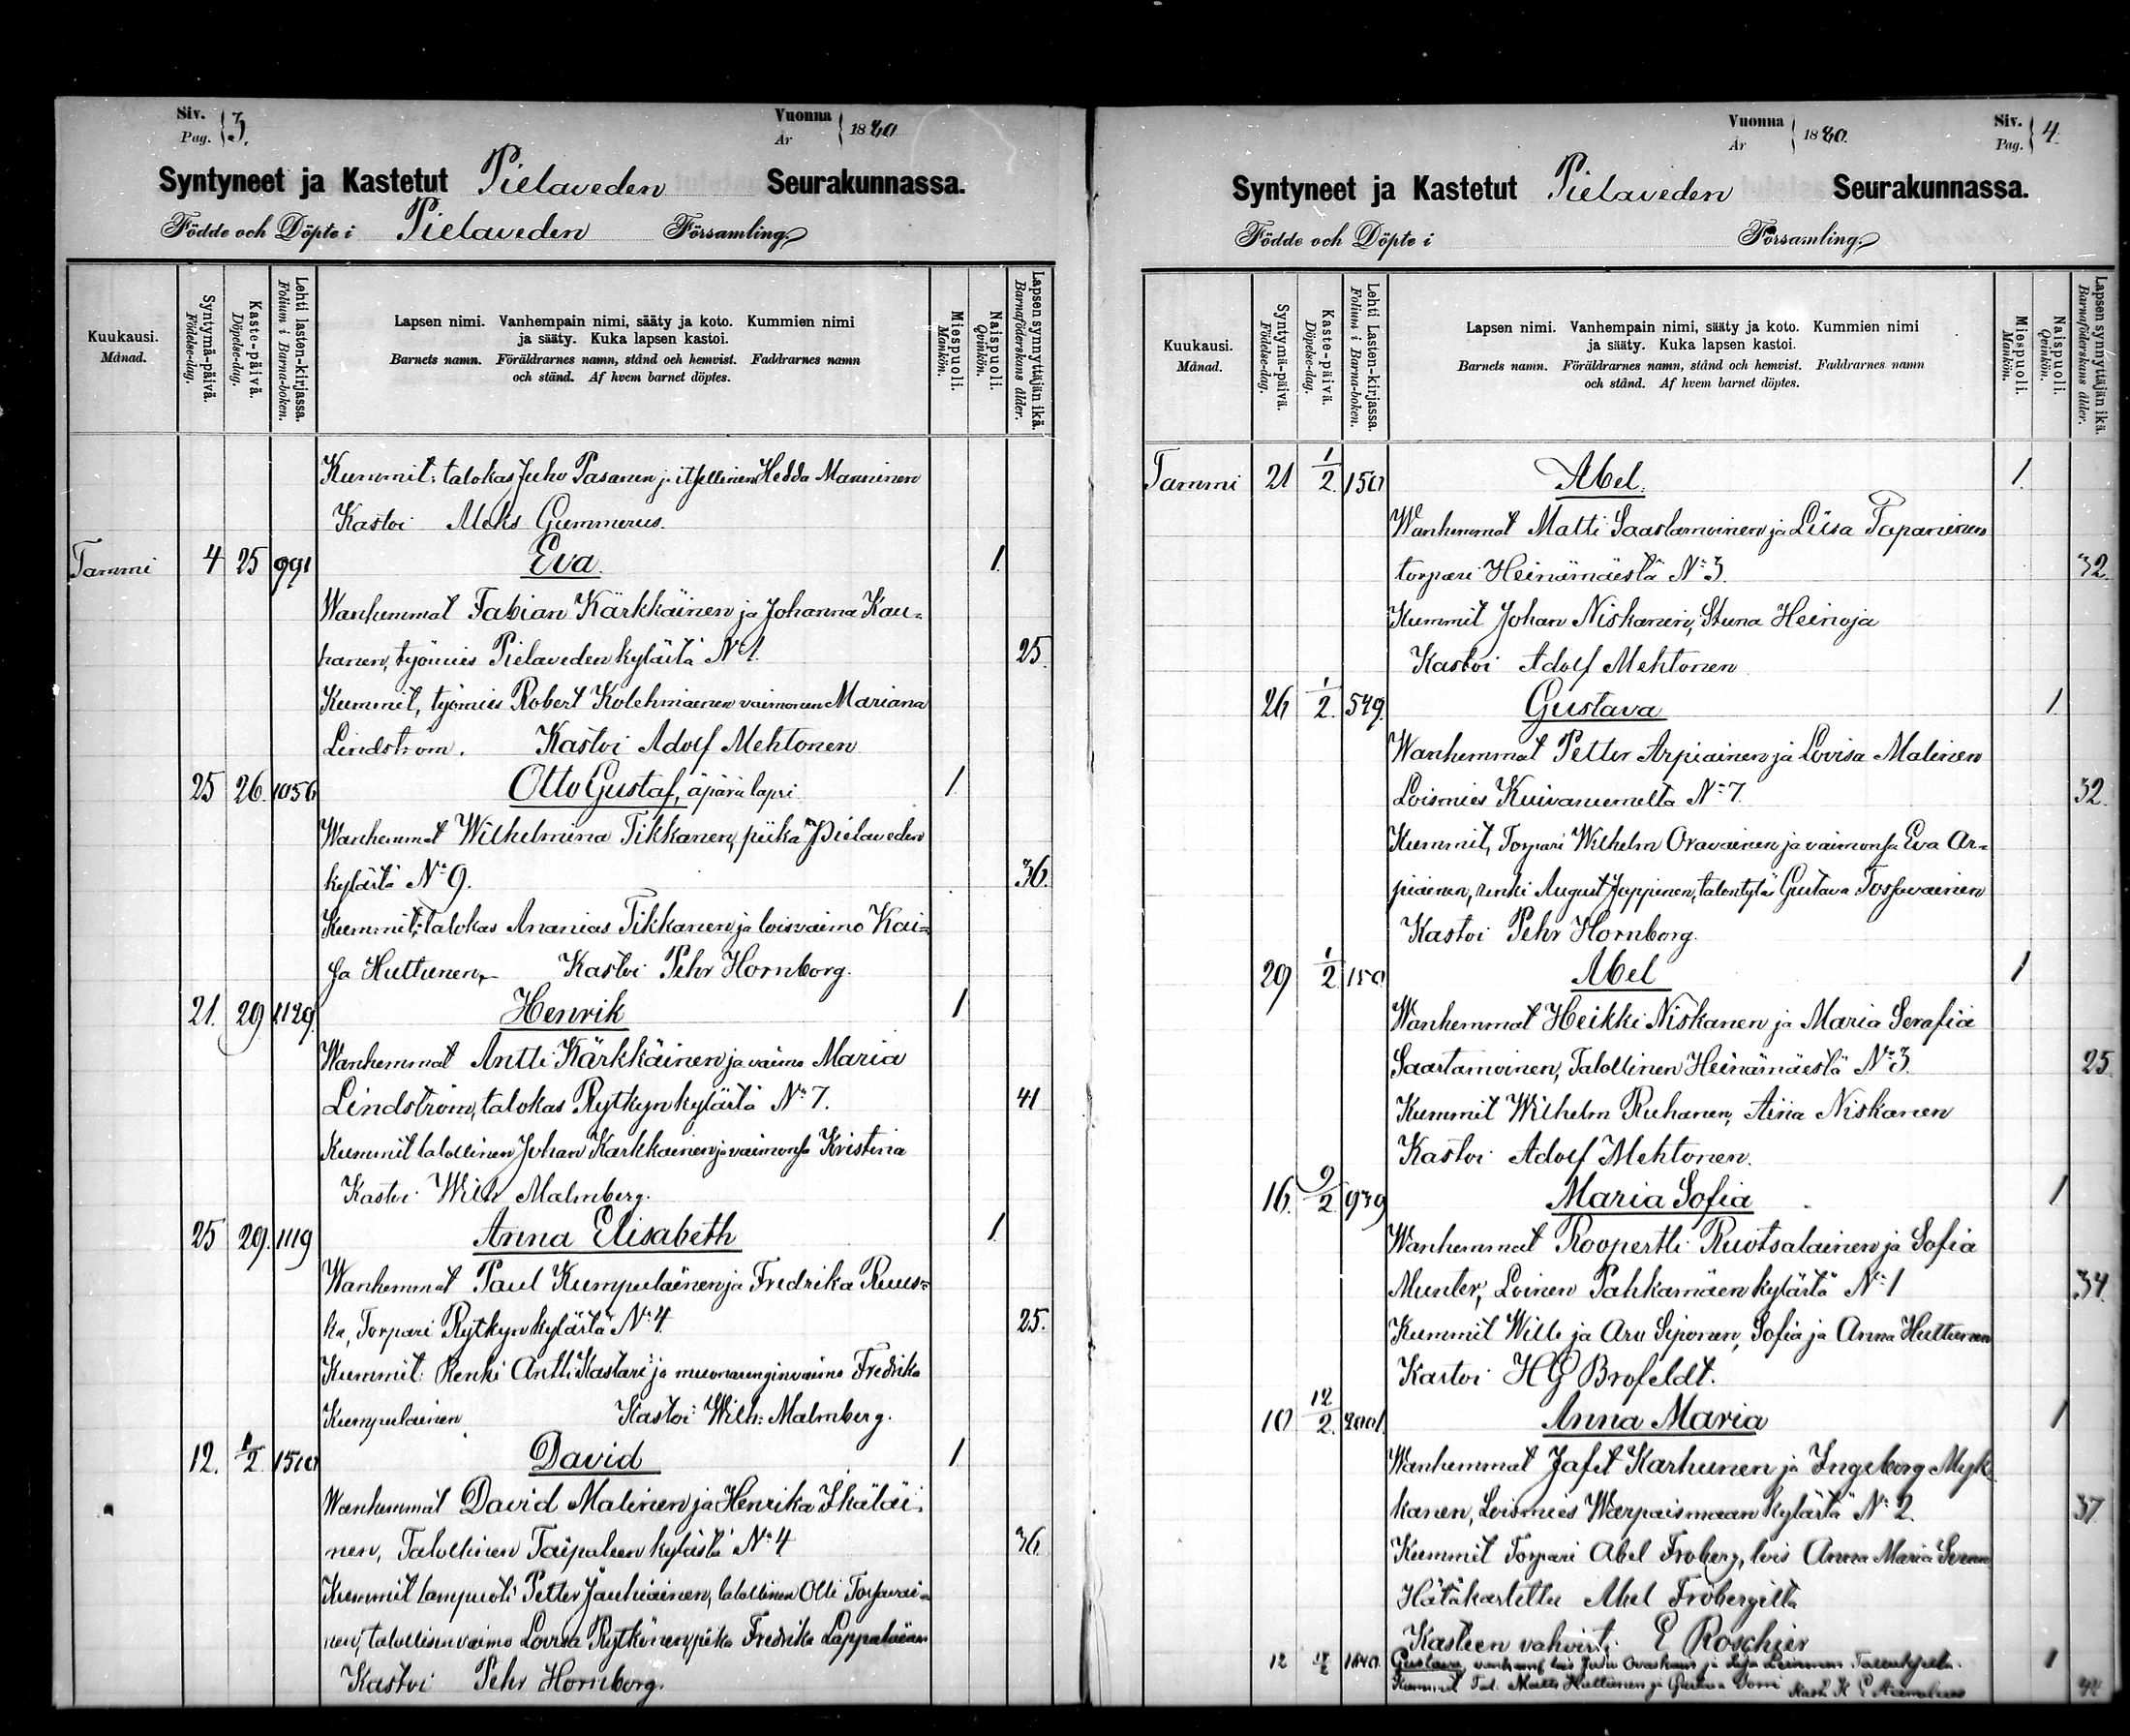 Siv. Pag. } 3.
Vuonna År } 1880
Syntyneet ja Kastetut Pielaveden Seurakunnassa.
Födde och Döpte i Pielaveden Församling.
Kuukausi. Månad.
Syntymä-päivä. Födelse-dag.
Kaste-päivä. Döpelse-dag.
Lehti lasten-kirjassa. Folium i Barna-boken.
Lapsen nimi. Vanhempain nimi, sääty ja koto. Kummien nimi
ja sääty. Kuka lapsen kastoi.
Barnets namn. Föräldrarnes namn, stånd och hemvist. Faddrarnes namn
och stånd. Af hvem barnet döptes.
Miespuoli. Mankön.
Naispuoli. Qvinkön.
Lapsen synnyttäjän ikä. Barnaföderskans ålder.
Kummit: talokas Juho Pasanen ja itsellinen Hedda Manninen
Kastoi Aleks Gummerus.
Tammi 4 25 991 Eva 1.
Wanhemmat Fabian Kärkkäinen ja Johanna Kau-
hanen, työmies Pielaveden kylästä N:1. 25.
Kummit, työmies Robert Kolehmainen vaimonen Mariana
Lindström. Kastoi Adolf Mehtonen
25 26. 1056 Otto Gustaf, äpärä lapsi 1.
Wanhemmat Wilhelmina Tikkanen, piika Pielaveden
kylästä N:9. 36.
Kummit: talokas Ananias Tikkanen ja loisvaimo Kai-
sa Huttunen, Kastoi Pehr Hornborg.
21. 29 1129. Henrik 1
Wanhemmat Antti Kärkkäinen ja vaimo Maria
Lindström, talokas Rytkyn kylästä N:7. 41
Kummit talollinen Johan Kärkkäinen ja vaimonsa Kristina
Kastoi Wilh Malmberg.
25 29. 1119 Anna Elisabeth 1.
Wanhemmat Paul Kumpulainen ja Fredrika Ruus-
ka, Torpari Rytkyn kylästä N:4. 25.
Kummit: Renki Antti Kastari ja muonarenginvaimo Fredrika
Kumpulainen Kastoi: Wilh: Malmberg.
12. 1/2 1500 David 1
Wanhemmat David Malinen ja Henrika Ikäläi-
nen, Talollinen Taipaleen kylästä N:4 36.
Kummit lampuoti Petter Jauhiainen, talollinen Olli Tossavai-
nen, talollisen vaimo Lovisa Rytkönen, piika Fredrika Lappalainen
Kastoi Pehr Hornborg.
Vuonna År } 1880.
Siv. Pag. } 4.
Syntyneet ja Kastetut Pielaveden Seurakunnassa.
Födde och Döpte i Församling.
Kuukausi. Månad.
Syntymä-päivä. Födelse-dag.
Kaste-päivä. Döpelse-dag.
Lehti Lasten-kirjassa. Folium i Barna-boken.
Lapsen nimi. Vanhempain nimi, sääty ja koto. Kummien nimi
ja sääty. Kuka lapsen kastoi.
Barnets namn. Föräldrarnes namn, stånd och hemvist. Faddrarnes namn
och stånd. Af hvem barnet döptes.
Miespuoli. Mankön.
Naispuoli. Qvinkön.
Lapsen synnyttäjän ikä. Barnaföderskans ålder.
Tammi 21 1/2. 150 Abel. 1.
Wanhemmat Matti Saastamoinen ja Liisa Tapaninen
torpari Heinämäestä N:3. 32.
Kummit Johan Niskanen, Stuna Heinoja
Kastoi Adolf Mehtonen
26 1/2. 549. Gustava 1.
Wanhemmat Petter Arpiainen ja Lovisa Malinen
Loismies Kuivaniemeltä N:7. 32.
Kummit, Torpari Wilhelm Oravainen ja vaimonsa Eva Ar-
piainen, renki August Jäppinen, talontytär Gustava Tossavainen
Kastoi Pehr Hornborg.
29 1/2 150 Abel 1
Wanhemmat Heikki Niskanen ja Maria Serafia
Saastamoinen, Talollinen Heinämäestä N:3. 25.
Kummit Wilhelm Ruhanen, Aina Niskanen
Kastoi Adolf Mehtonen.
16. 9/2 939 Maria Sofia 1
Wanhemmat Roopertti Ruotsalainen ja Sofia
Munter, Loinen Pahkamäen kylästä N:1 34.
Kummit Wille ja Aru Siponen, Sofia ja Anna Huttunen
Kastoi HG Brofeldt.
10 12/2. Anna Maria 1
Wanhemmat Jafet Karhunen ja Ingeborg Myk-
känen, Loismies Warpaismaan kylästä N:2. 37.
Kummit Torpari Abel Froberg, lois Anna Maria
Hätäkastettu Abel Fröbergiltä
Kasteen vahvisti E Roschier
12 Gustava, vanhemf lois Juho ja Leinonen 1
Kummit Tal. Matts Huttunen ja Kast. K E